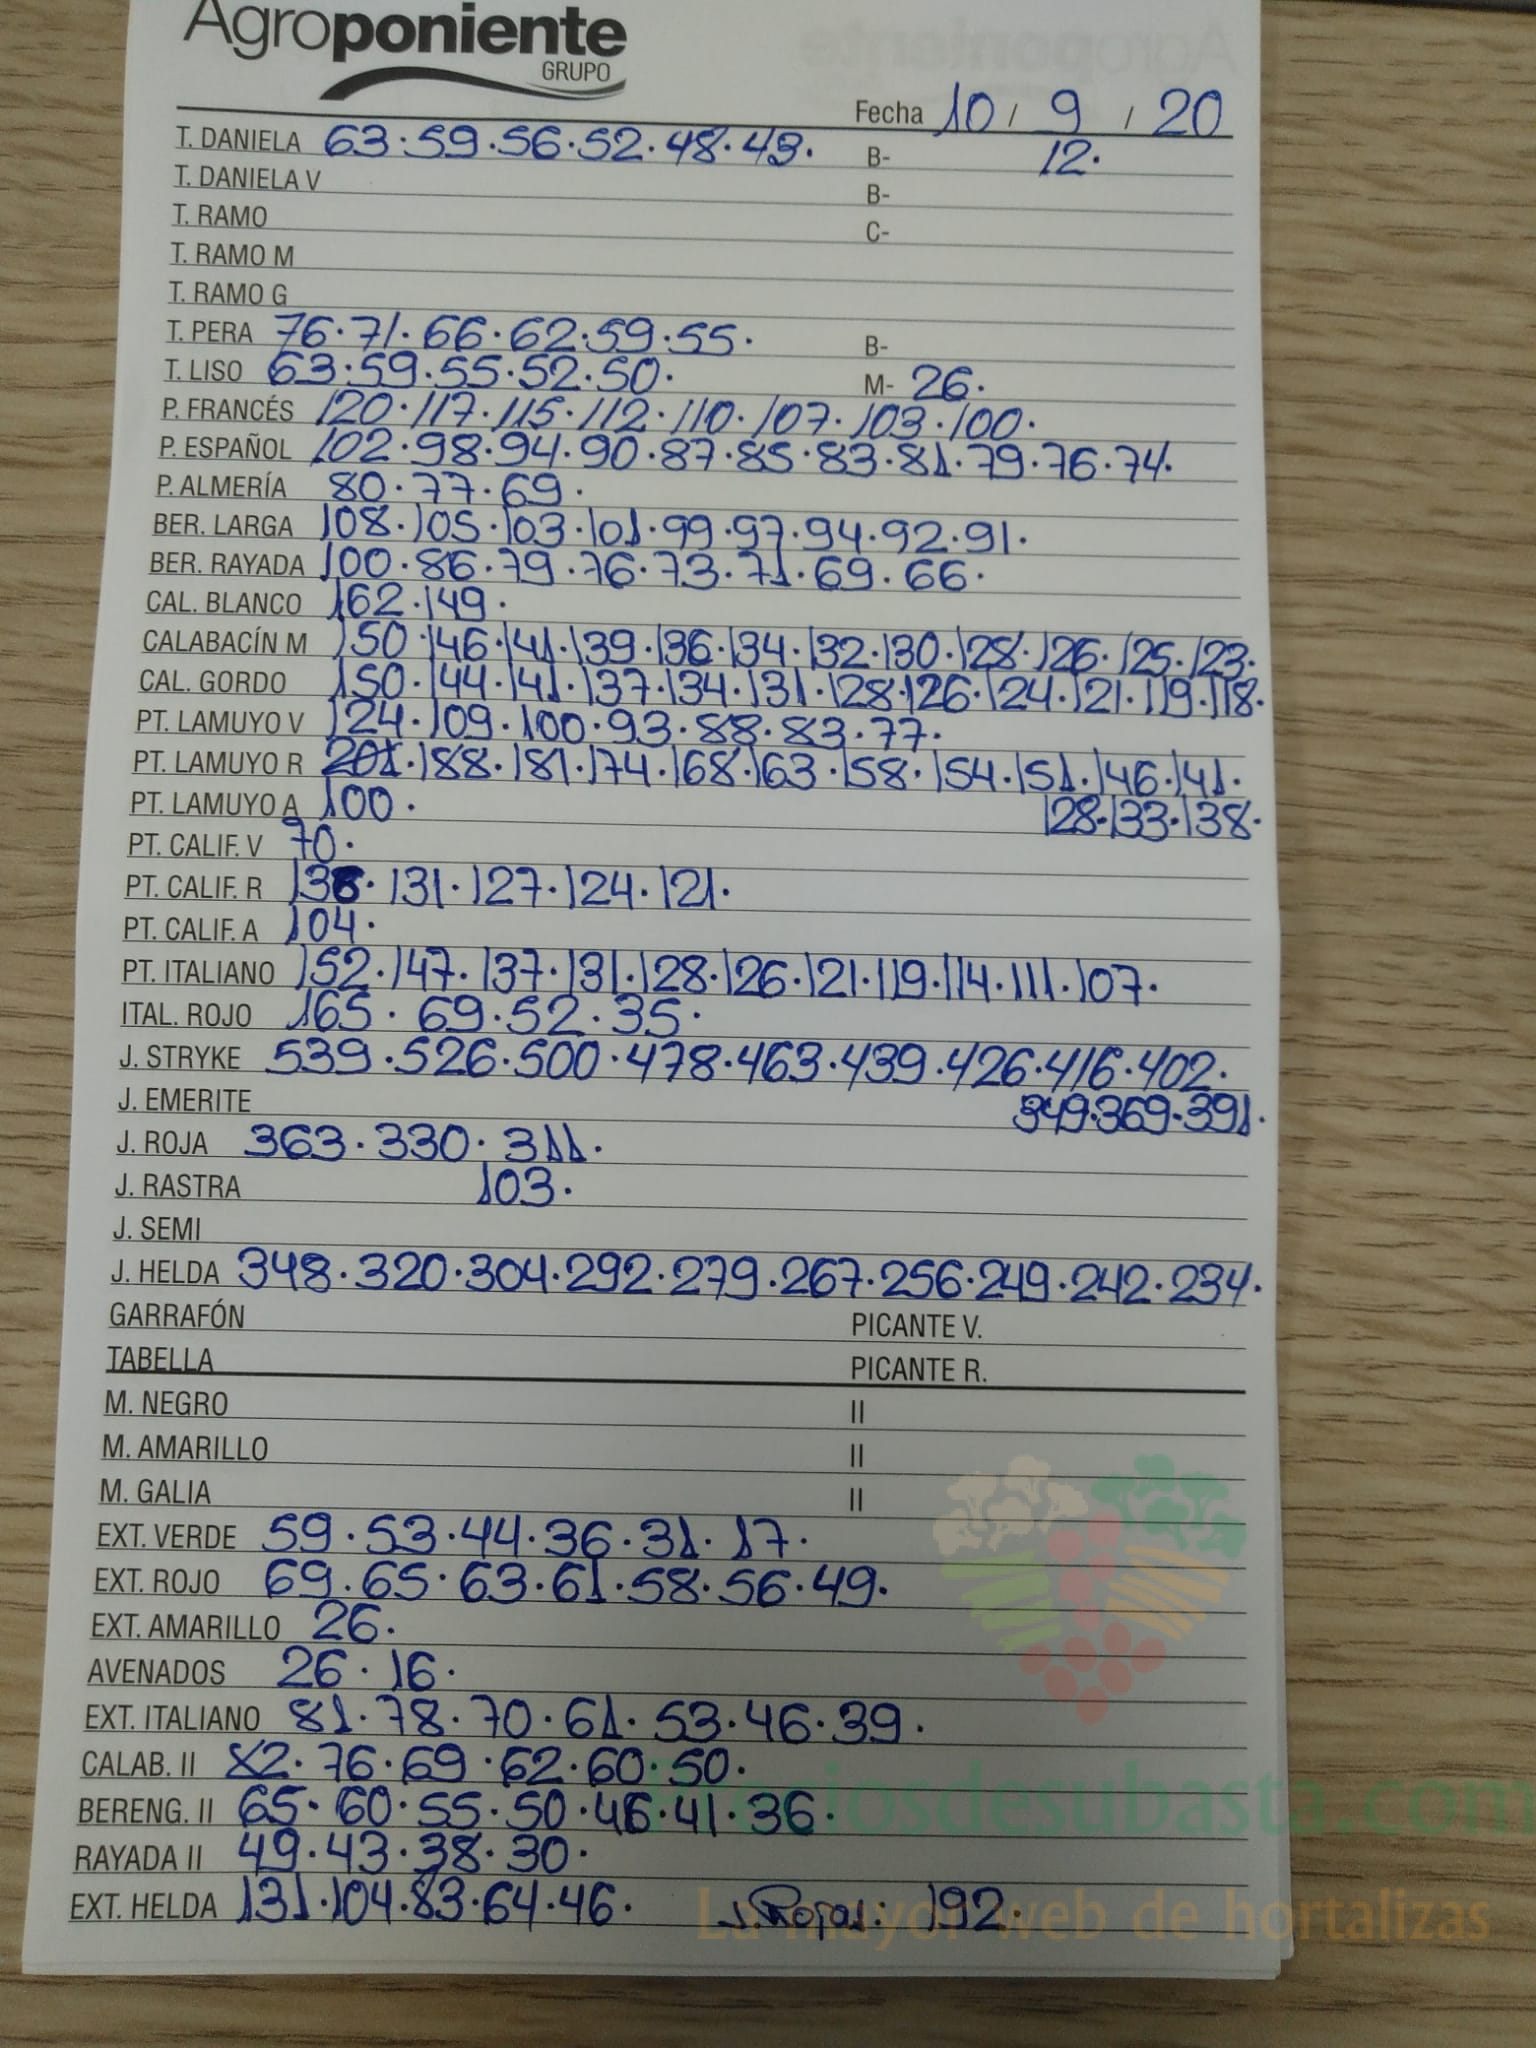 Agroponiente
GRUPO
Fecha 10 / 9 / 20
T. DANIELA 63·59·56·52·48·43· B- 12·
T. DANIELA V B-
T. RAMO C-
T. RAMO M
T. RAMO G
T. PERA 76·71·66·62·59·55· B-
T. LISO 63·59·55·52·50· M- 26·
P. FRANCÉS 120·117·115·112·110·107·103·100·
P. ESPAÑOL 102·98·94·90·87·85·83·81·79·76·74·
P. ALMERÍA 80·77·69·
BER. LARGA 108·105·103·101·99·97·94·92·91·
BER. RAYADA 100·86·79·76·73·71·69·66·
CAL. BLANCO 162·149·
CALABACÍN M 150·146·141·139·136·134·132·130·128·126·125·123·
CAL. GORDO 150·144·141·137·134·131·128·126·124·121·119·118·
PT. LAMUYO V 124·109·100·93·88·83·77·
PT. LAMUYO R 201·188·181·174·168·163·158·154·151·146·141·
PT. LAMUYO A 100· 128·133·138·
PT. CALIF. V 70·
PT. CALIF. R 131·127·124·121·
PT. CALIF. A 104·
PT. ITALIANO 152·147·137·131·128·126·121·119·114·111·107·
ITAL. ROJO 165·69·52·35·
J. STRYKE 539·526·500·478·463·439·426·416·402·
J. EMERITE 349·369·391·
J. ROJA 363·330·311·
J. RASTRA 103·
J. SEMI
J. HELDA 348·320·304·292·279·267·256·249·242·234·
GARRAFÓN PICANTE V.
TABELLA PICANTE R.
M. NEGRO II
M. AMARILLO II
M. GALIA II
EXT. VERDE 59·53·44·36·31·17·
EXT. ROJO 69·65·63·61·58·56·49·
EXT. AMARILLO 26·
AVENADOS 26·16·
EXT. ITALIANO 81·78·70·61·53·46·39·
CALAB. II 82·76·69·62·60·50·
BERENG. II 65·60·55·50·46·41·36·
Preciosdesubasta.com
RAYADA II 49·43·38·30·
EXT. HELDA 131·104·83·64·46· J. Rojas: 192·
La mayor web de hortalizas